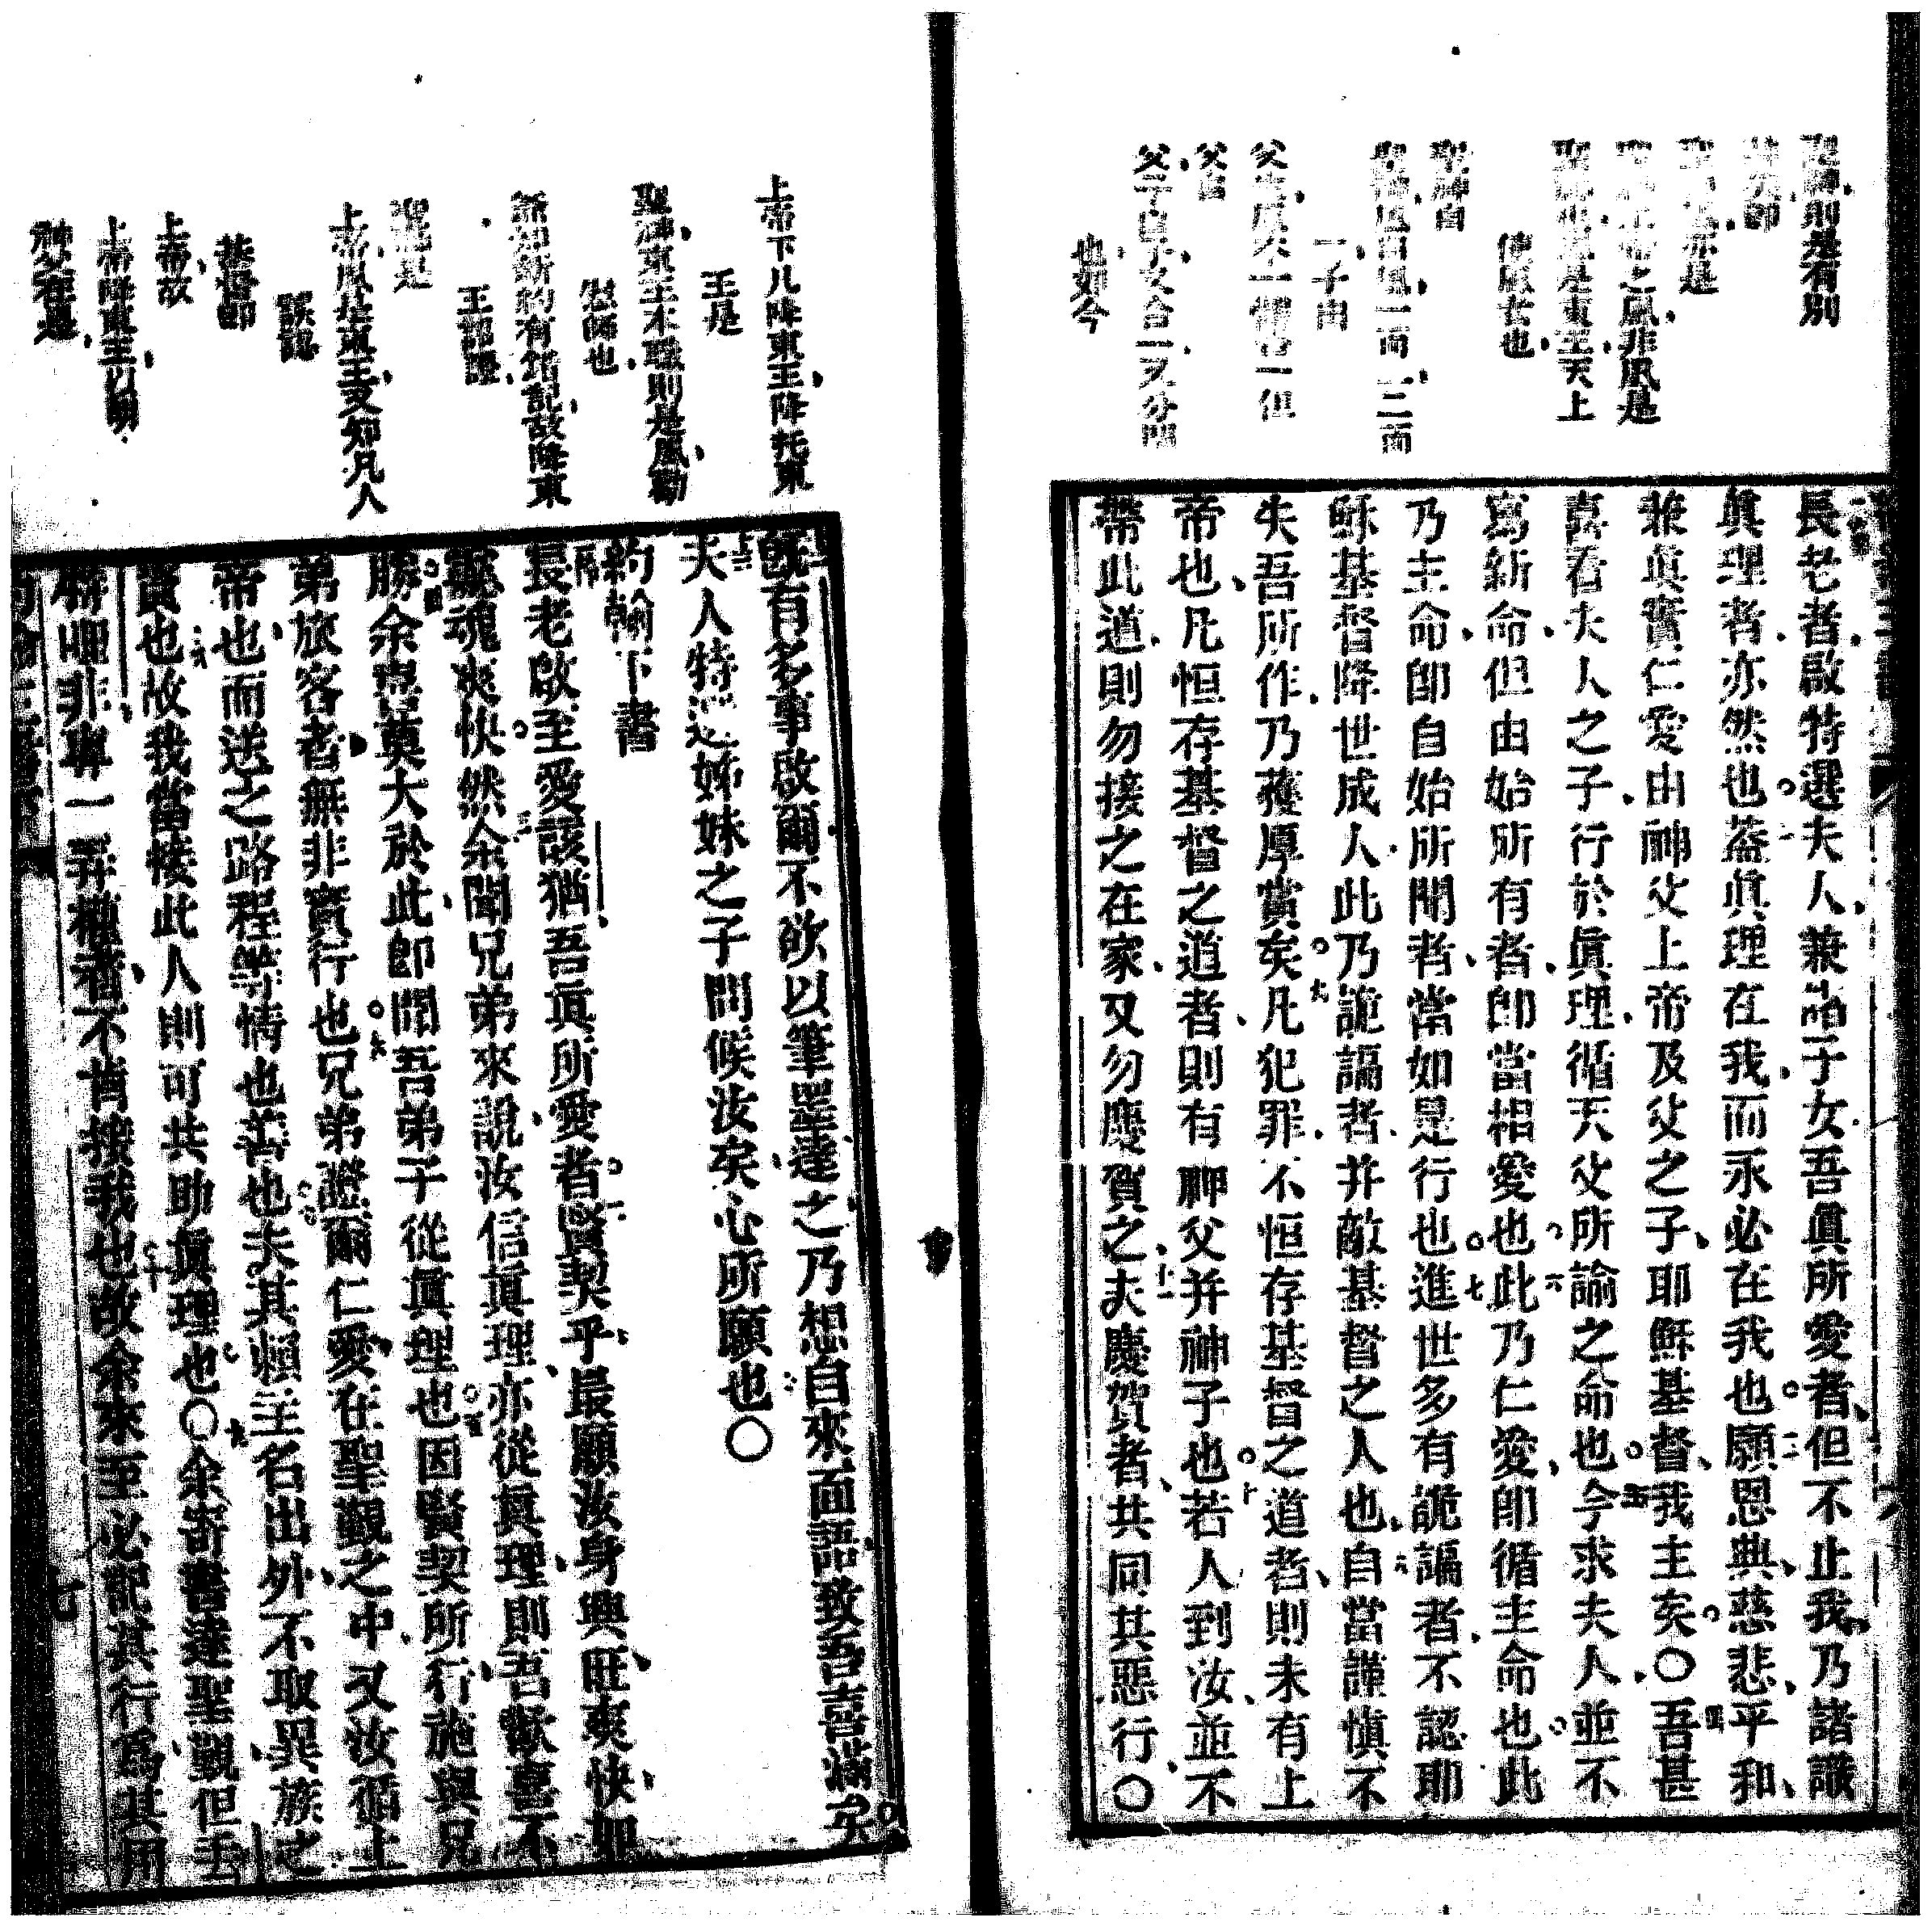 聖神則是有別
亦是
上帝之風非風是
聖神也是東王天上
使風者也
聖神自
聖神風自風一而二二而
一子由
父生風本一體也一但
父自
父子自子又合一又分開
也如今
長老者啟特選夫人兼諸子女吾眞所愛者但不止我乃諸識
眞理者亦然也蓋眞理在我而永必在我也願恩典慈悲平和
兼眞實仁愛由神父上帝及父之子耶穌基督我主矣〇吾甚
喜看夫人之子行於眞理循天父所諭之命也今求夫人並不
寫新命但由始所有者卽當相愛也此乃仁愛卽循主命也此
乃主命卽自始所聞者當如是行也進世多有詭譎者不認耶
穌基督降世成人此乃詭譎者并敵基督之人也自當謹愼不
失吾所作乃獲厚賞矣凡犯罪不恒存基督之道者則未有上
帝也凡恒存基督之道者則有神父并神子也若人到汝並不
帶此道則勿接之在家又勿慶賀之夫慶賀者共同其惡行〇
上帝下凡降東王降托東
王是
聖神東王本職則是風勸
慰師也
爺知新約有錯記故降東
王詔證
聖神是
上帝風是東王又知凡人
誤認
基督卽
上帝故
上帝降東王以明
神父在是
旣有多事啟爾不欲以筆墨達之乃想自來面語致吾喜滿矣
夫人特選姊妹之子問候汝矣心所願也〇
約翰下書
長老啟至愛該猶吾眞所愛者賢契乎最願汝身興旺爽快如
靈魂爽快然余聞兄弟來說汝信眞理亦從眞理則吾歡喜不
勝余喜莫大於此卽聞吾弟子從眞理也因賢契所行施與兄
弟旅客者無非實行也兄弟證爾仁愛在聖觀之中又汝循上
帝也而送之路程等情也善也夫其賴主名出外不取異族之
賣也故我當接此人則可共助眞理也〇余寄書達聖觀但丟
非與一弄權者不肯接我也故余來至必記其行爲其用
七